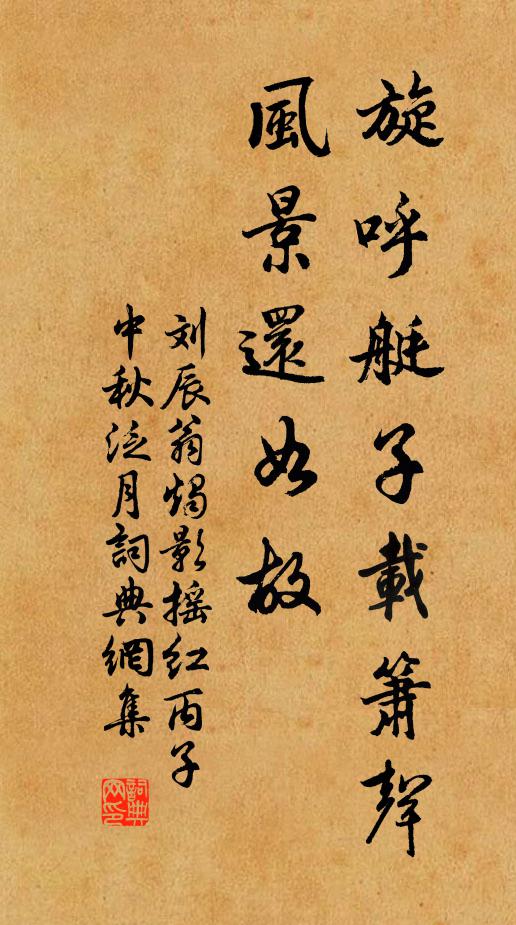 旋呼艇子載簫聲
風景還如故
刘辰翁燭影摇红丙子
中秋泛月詞典網集
詞典網印